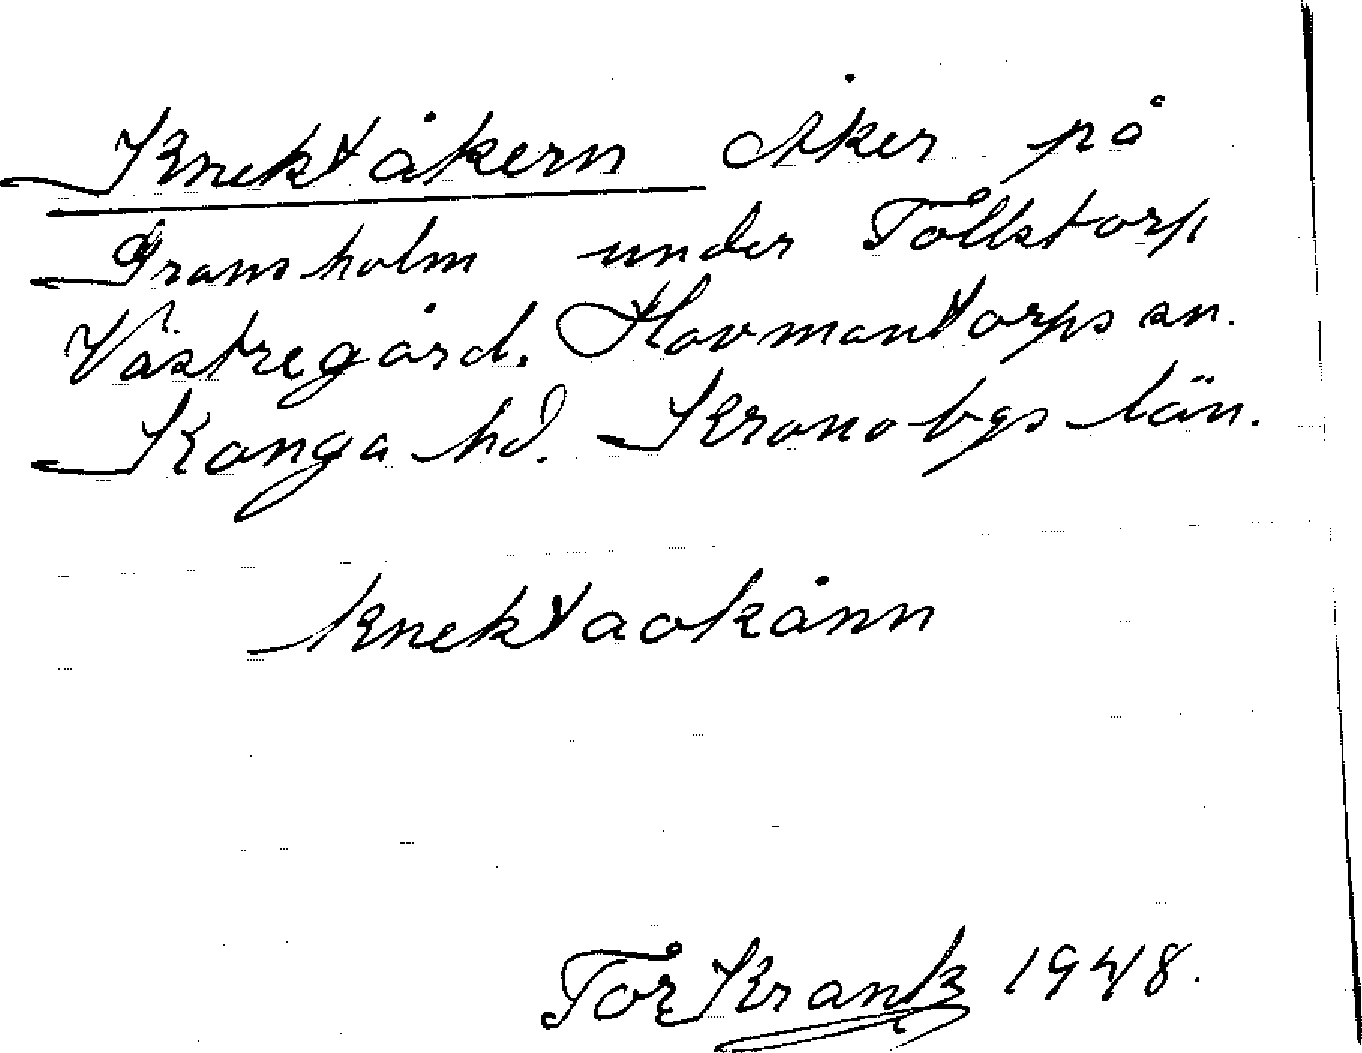 Knektåkern Åker på
Gransholm under Tollstorp
Västregård. Hovmantorps sn.
Konga hd. Kronobgs län.
knektaokånn
Tor Krantz 1948.